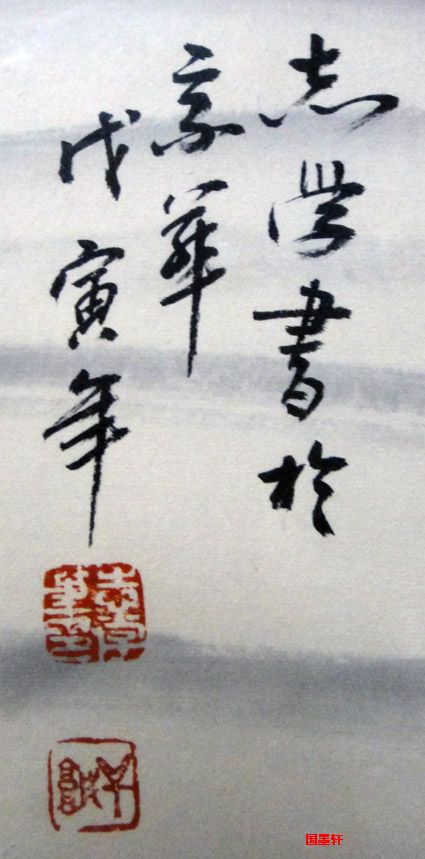 志學書於
京華
戊寅年
国墨轩